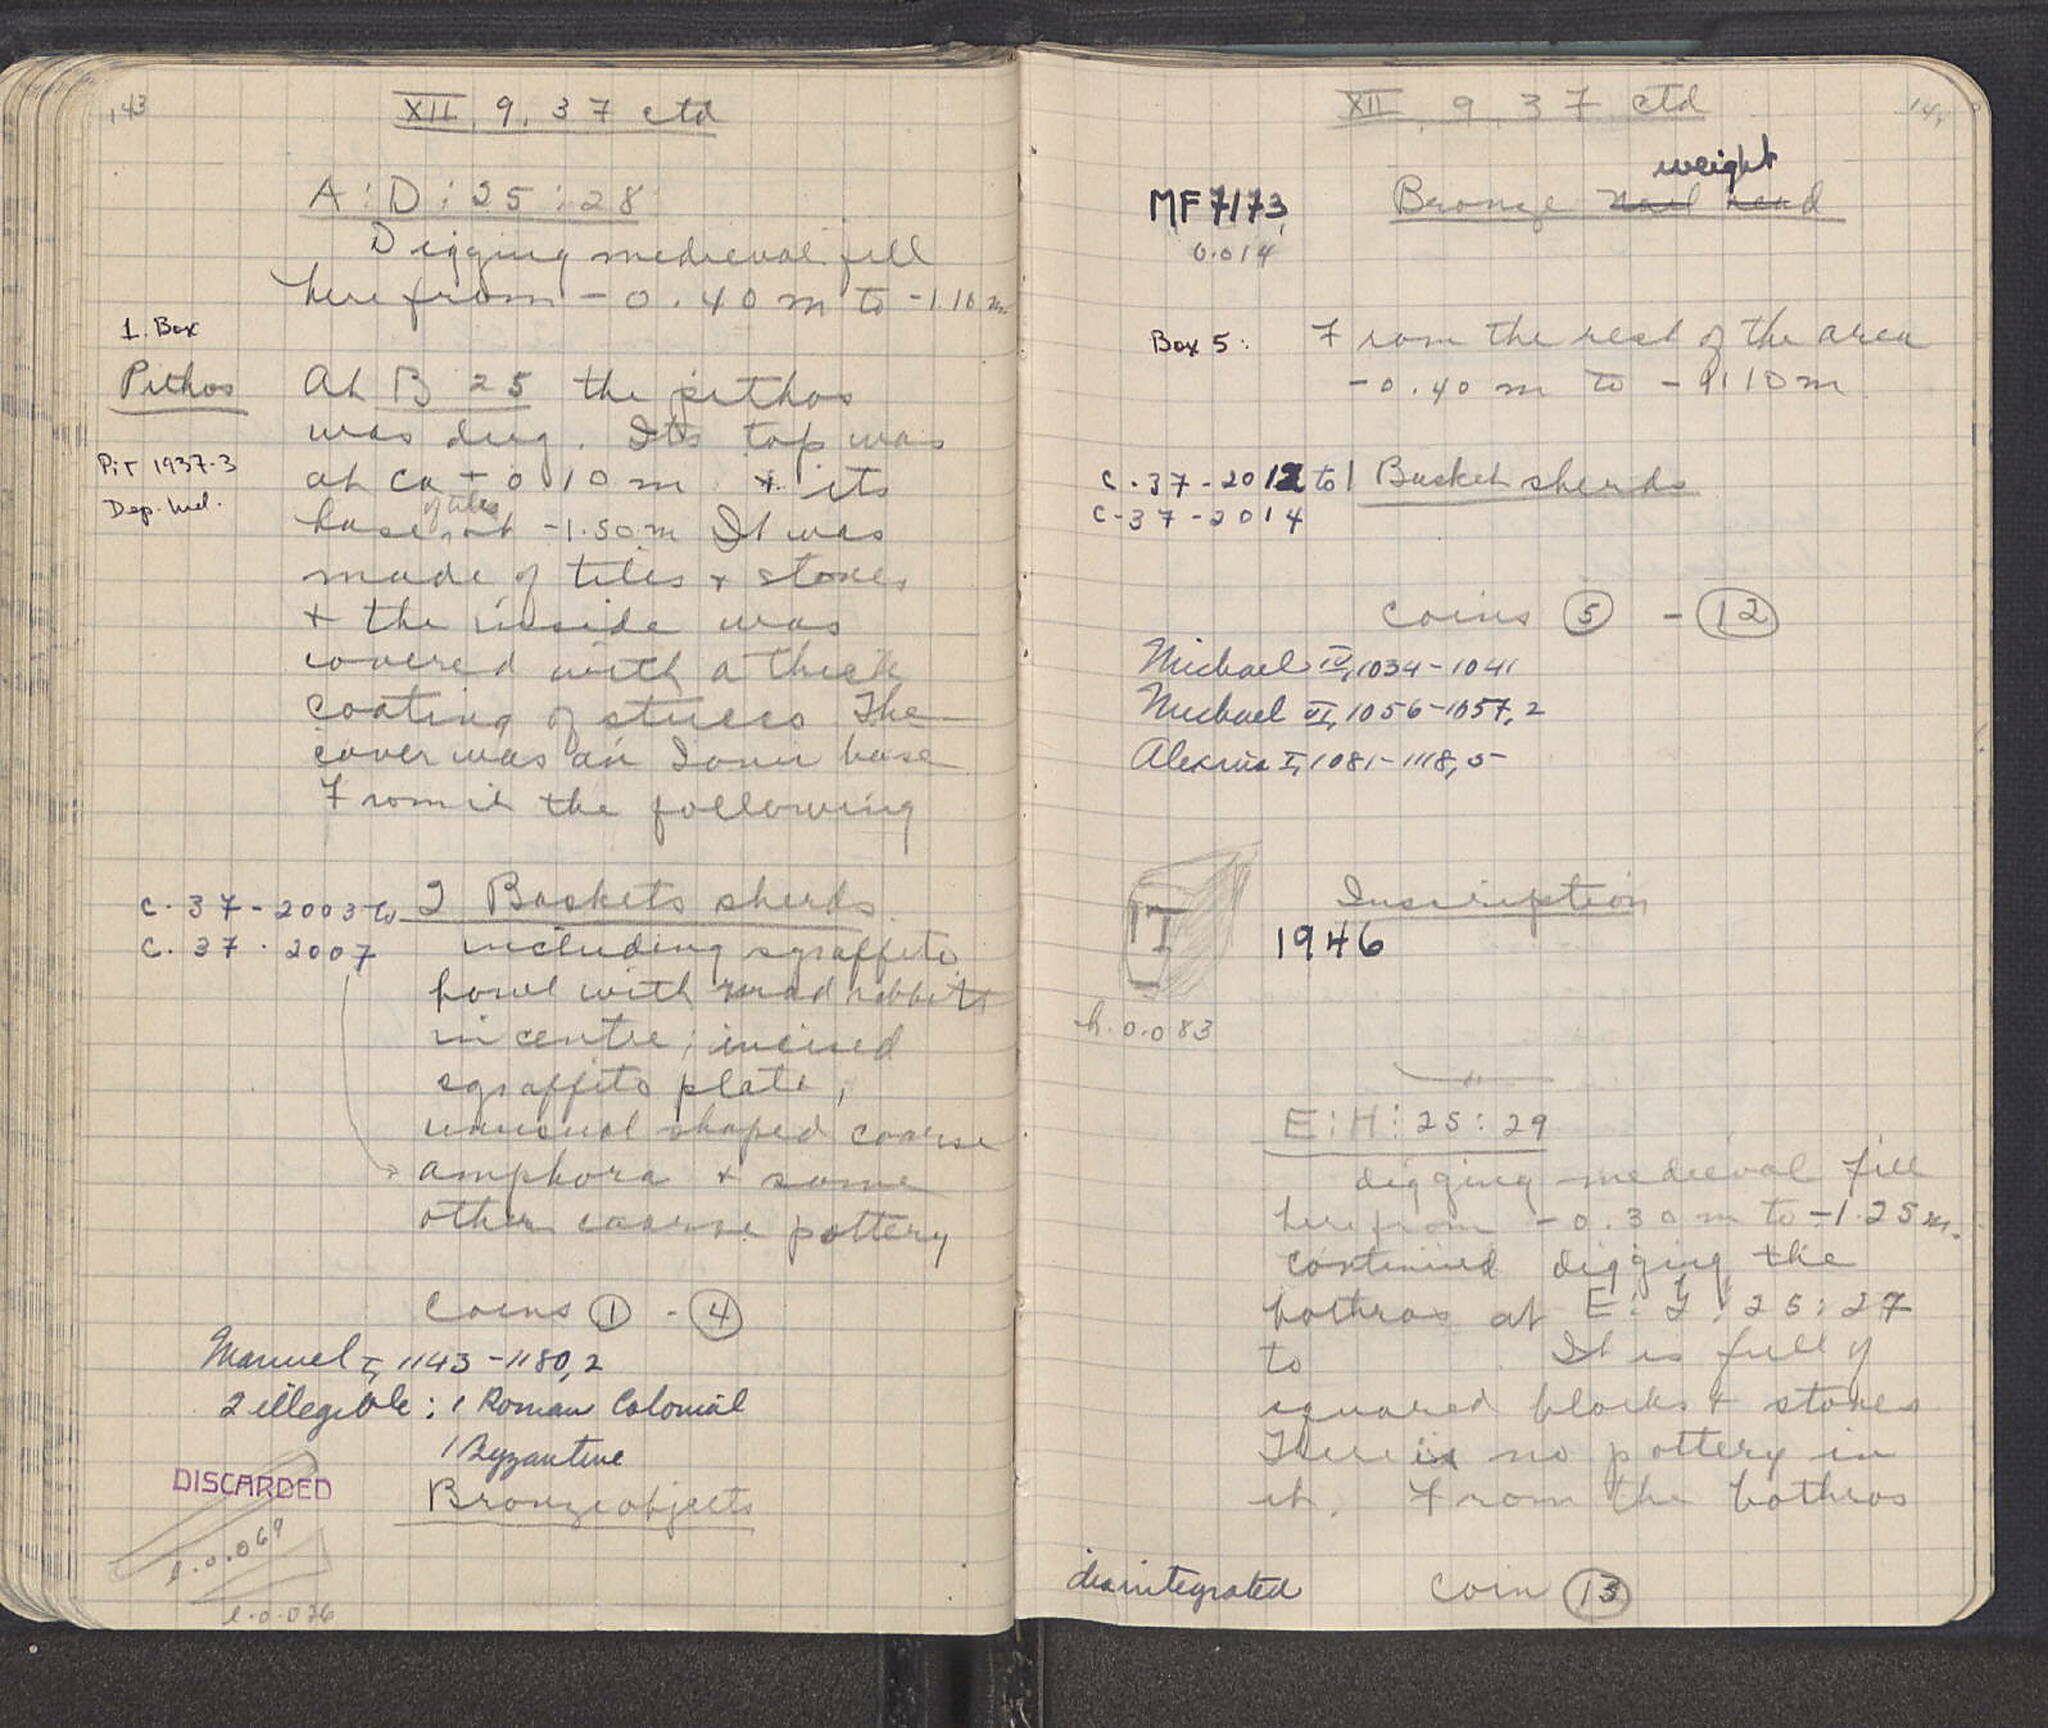 143
XII, 9, 37 ctd
A : D : 25 : 28
Digging medieval fill
here from - 0.40 m to -1.10 m
1. Box
Pithos
At B 25 the pithos
was dug. Its top was
Pit 1937-3
at ca + 0 10 m + its
Dep. Ind.
of tiles
base at -1.50 m It was
made of tiles + stones
+ the inside was
covered with a thick
coating of stucco The
cover was an Ionic base
From it the following
C. 37 - 2003 to 2 Baskets sherds
C. 37 - 2007 including sgraffito
bowl with rabbits
in centre; incised
sgraffito plate,
unusual shaped coarse
amphora + some
other coarse pottery
Coins 1 - 4
Manuel I, 1143-1180, 2
2 illegible : 1 Roman Colonial
1 Byzantine
DISCARDED
Bronze objects
l. 0.069
l. 0.076
XII, 9, 37 ctd
weight
MF 7173, Bronze nail head
0.014
Box 5: From the rest of the area
-0.40 m to -1.10 m
C. 37 - 2012 to 1 Basket sherds
C-37-2014
Coins 5 - 12
Michael IV, 1034-1041
Michael VI, 1056-1057, 2
Alexius I, 1081-1118, 5
Inscription
1946
h. 0.083
E : H : 25 : 29
digging medieval fill
here from -0.30 m to -1.25 m.
continued digging the
bothros at E : G : 25 : 27
to It is full of
squared blocks + stones
There is no pottery in
it. From the bothros
disintegrated Coin 13